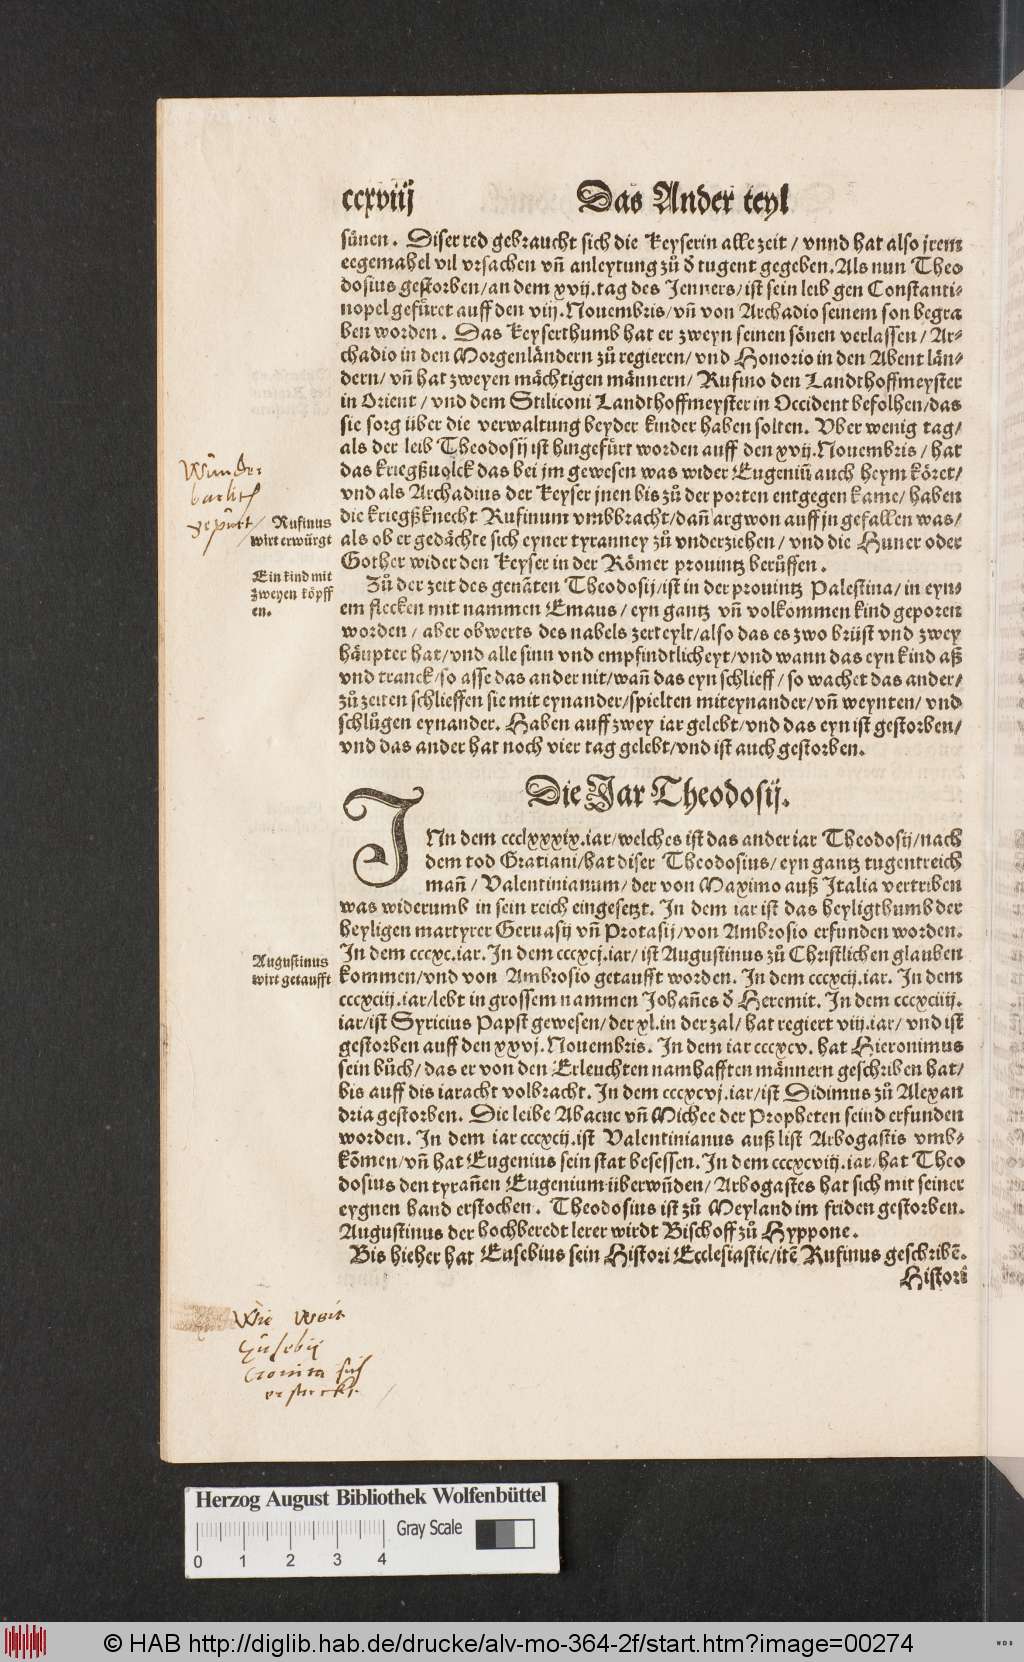 ccxviij Das Ander teyl
sünen. Diser red gebraucht sich die Keyserin alle zeit / vnnd hat also jrem
eegemahel vil vrsachen vñ anleytung zů d̕ tugent gegeben. Als nun Theo
dosius gestorben / an dem xvij. tag des Jenners / ist sein leib gen Constanti-
nopel gefüret auff den viij. Nouembris / vñ von Archadio seinem son begra
ben worden. Das Keyserthumb hat er zweyn seinen sönen verlassen / Ar-
chadio in den Morgenländern zů regieren / vnd Honorio in den Abent län-
dern / vñ hat zweyen mächtigen männern / Rufino den Landthoffmeyster
in Orient / vnd dem Stiliconi Landthoffmeyster in Occident befolhen / das
sie sorg über die verwaltung beyder kinder haben solten. Vber wenig tag /
als der leib Theodosij ist hingefürt worden auff den xvij. Nouembris / hat
das kriegßuolck das bei jm gewesen was wider Eugeniũ auch heym köret /
vnd als Archadius der Keyser jnen bis zů der porten entgegen kame / haben
die kriegßknecht Rufinum vmbbracht / dañ argwon auff jn gefallen was /
als ob er gedächte sich eyner tyranney zů vnderziehen / vnd die Huner oder
Gother wider den Keyser in der Römer prouintz berůffen.
Wunder-
barlich
gepürt /
Rufinus
wirt erwürgt
Ein kind mit
zweyen köpff
en.
Zů der zeit des genãten Theodosij / ist in der prouintz Palestina / in eyn-
em flecken mit nammen Emaus / eyn gantz vñ volkommen kind geporen
worden / aber obwerts des nabels zerteylt / also das es zwo brüst vnd zwey
häupter hat / vnd alle sinn vnd empfindtlicheyt / vnd wann das eyn kind aß
vnd tranck / so asse das ander nit / wañ das eyn schlieff / so wachet das ander /
zů zeiten schlieffen sie mit eynander / spielten miteynander / vñ weynten / vnd
schlůgen eynander. Haben auff zwey iar gelebt / vnd das eyn ist gestorben /
vnd das ander hat noch vier tag gelebt / vnd ist auch gestorben.
Die Jar Theodosij.
IN dem ccclxxxix. iar / welches ist das ander iar Theodosij / nach
dem tod Gratiani / hat diser Theodosius / eyn gantz tugentreich
mañ / Valentinianum / der von Maximo auß Italia vertriben
was widerumb in sein reich eingesetzt. In dem iar ist das heyligthumb der
heyligen martyrer Geruasij vñ Protasij / von Ambrosio erfunden worden.
In dem cccxc. iar. In dem cccxcj. iar / ist Augustinus zů Christlichen glauben
kommen / vnd von Ambrosio getaufft worden. In dem cccxcij. iar. In dem
cccxciij. iar / lebt in grossem nammen Johañes d̕ Heremit. In dem cccxciiij.
iar / ist Syricius Papst gewesen / der xl. in der zal / hat regiert viij. iar / vnd ist
gestorben auff den xxvj. Nouembris. In dem iar cccxcv. hat Hieronimus
sein bůch / das er von den Erleuchten namhafften männern geschriben hat /
bis auff dis iar acht volbracht. In dem cccxcvj. iar / ist Didimus zů Alexan
dria gestorben. Die leibe Abacuc vñ Michee der Propheten seind erfunden
worden. In dem iar cccxcij. ist Valentinianus auß list Arbogastis vmb-
kõmen / vñ hat Eugenius sein stat besessen. In dem cccxcviij. iar / hat Theo
dosius den tyrañen Eugenium überwũden / Arbogastes hat sich mit seiner
eygnen hand erstochen. Theodosius ist zů Meyland im friden gestorben.
Augustinus der hochberedt lerer wirdt Bischoff zů Hyppone.
Bis hieher hat Eusebius sein Histori Ecclesiastic / itẽ Rufinus geschribẽ.
Histori
Augustinus
wirt getaufft
Wie weit
Eusebij
Cronica sich
erstreckt.
Herzog August Bibliothek Wolfenbüttel
Gray Scale
0 1 2 3 4
© HAB http://diglib.hab.de/drucke/alv-mo-364-2f/start.htm?image=00274